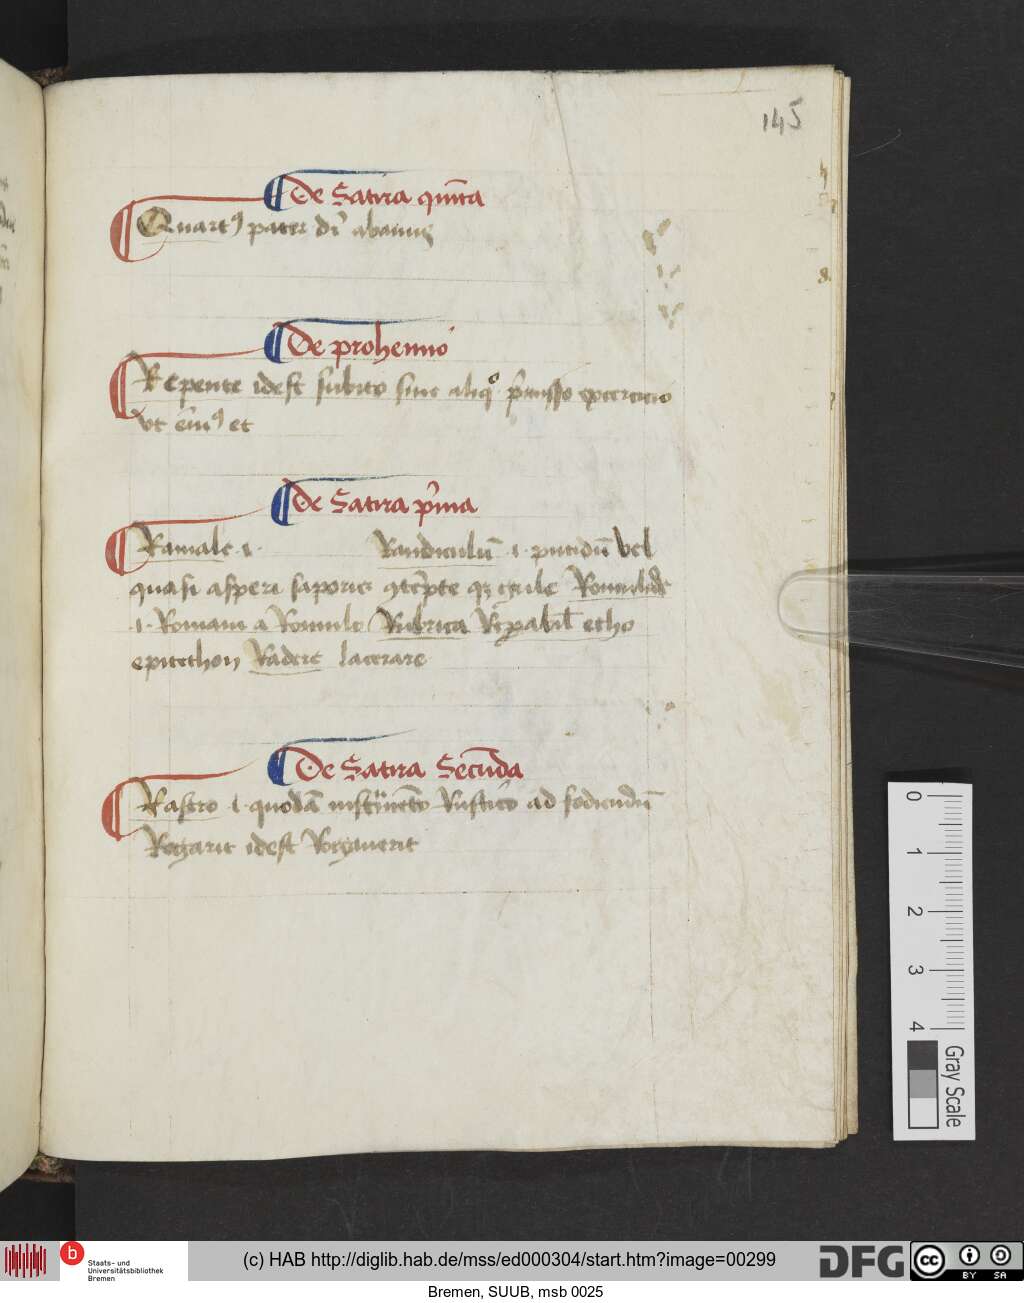 145
De Satira quīta
Quartꝰ pater dī abauus
De prohemio
REpente idest subito sine aliqͦ p̄misso exercicio
vt eīuꝰ et
De Satira p̄ima
Ramale .i. Randiculū .i. putidū vel
quasi asperi saporis Romulide
.i. Romani a Romulo Rubrica Rep̱abil̄ echo
epitethon Radere lacerare
De Satira Secūda
Rastro .i. quodā instrūēto Rusticō ad fodiendū
Rogarit idest Rogauerit
0 1 2 3 4
Gray Scale
b Staats- und
Universitätsbibliothek
Bremen
(c) HAB http://diglib.hab.de/mss/ed000304/start.htm?image=00299
DFG
cc BY SA
Bremen, SUUB, msb 0025